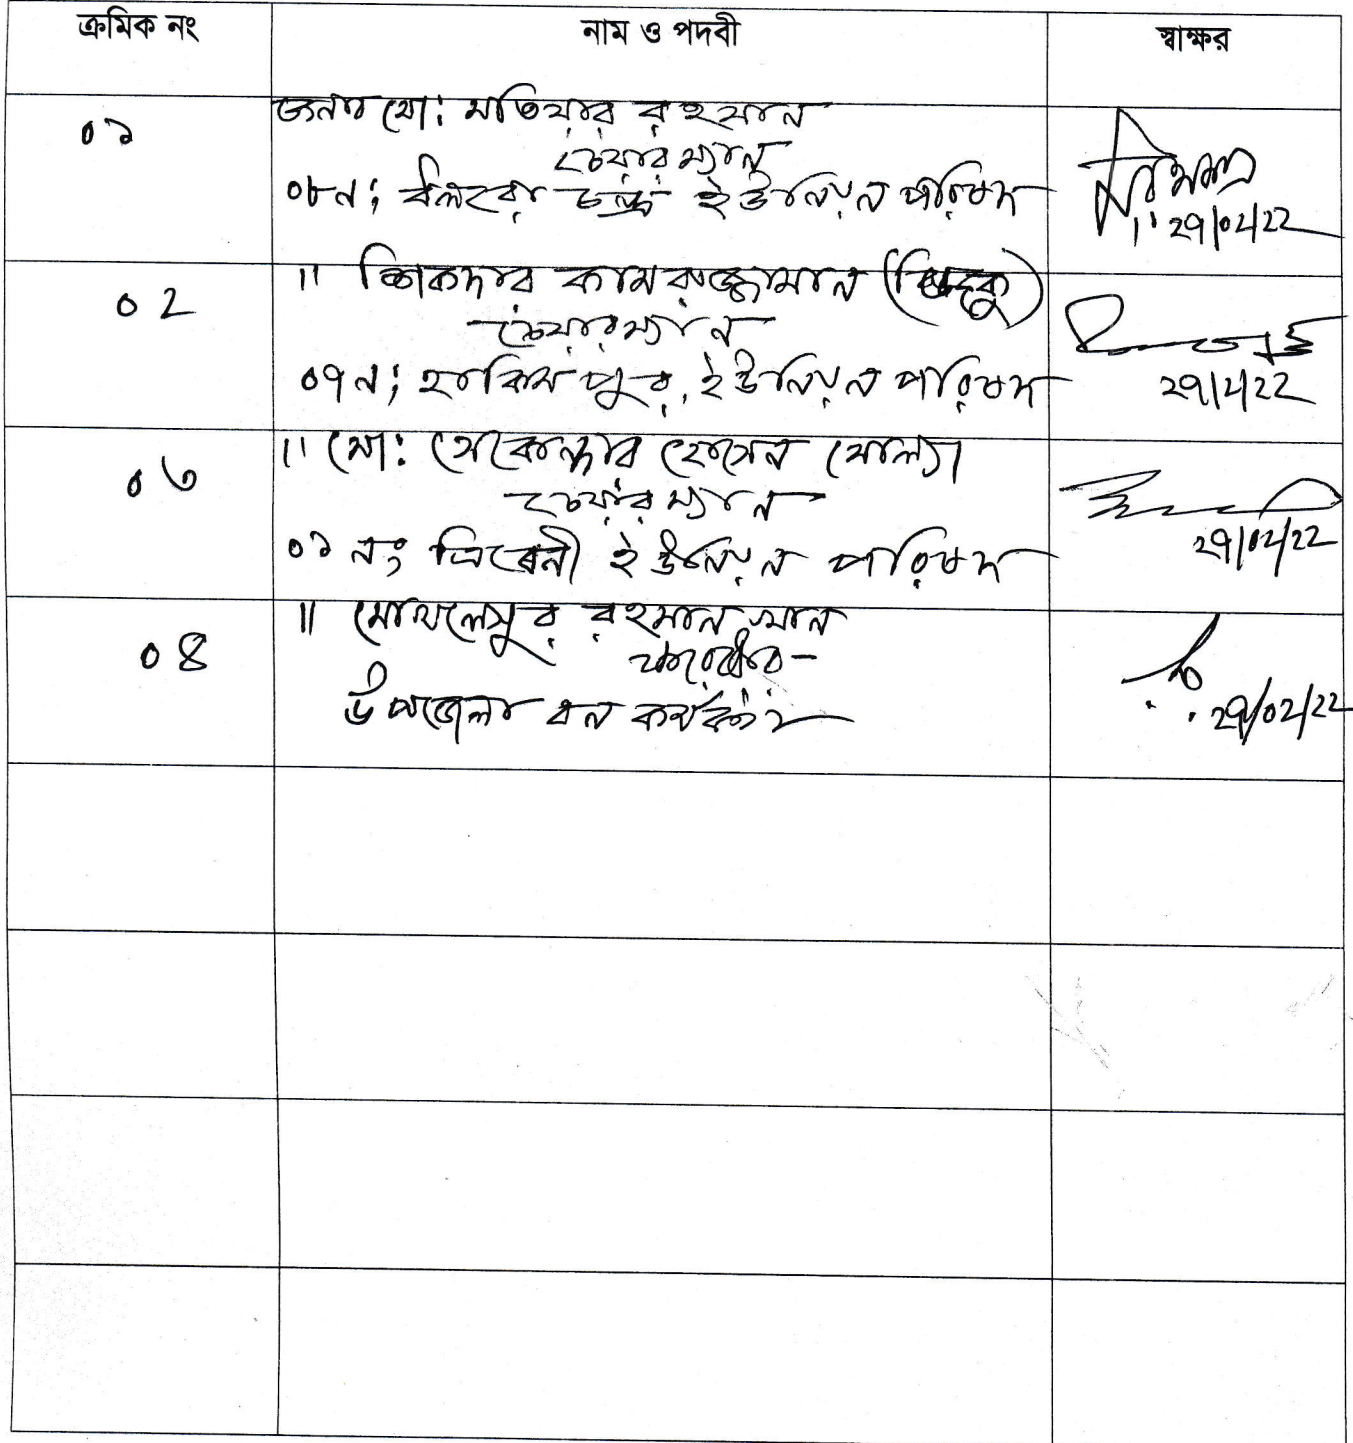 ক্রমিক নং নাম ও পদবী স্বাক্ষর
০১ জনাব মো: মতিয়ার রহমান
চেয়ারম্যান
০৮নং ইউনিয়ন পরিষদ
২৭/০২/২২
০২ " শিকদার কামরুজ্জামান
চেয়ারম্যান
০৭নং হাকিমপুর, ইউনিয়ন পরিষদ
২৭/২/২২
০৩ " মো: সেকেন্দার হোসেন মোল্যা
চেয়ারম্যান
০১ নং ত্রিবেনী ইউনিয়ন পরিষদ
২৭/০২/২২
০৪ " মোখলেসুর রহমান খান
ফরেষ্টার
উপজেলা বন কর্মকর্তা
২৭/০২/২২